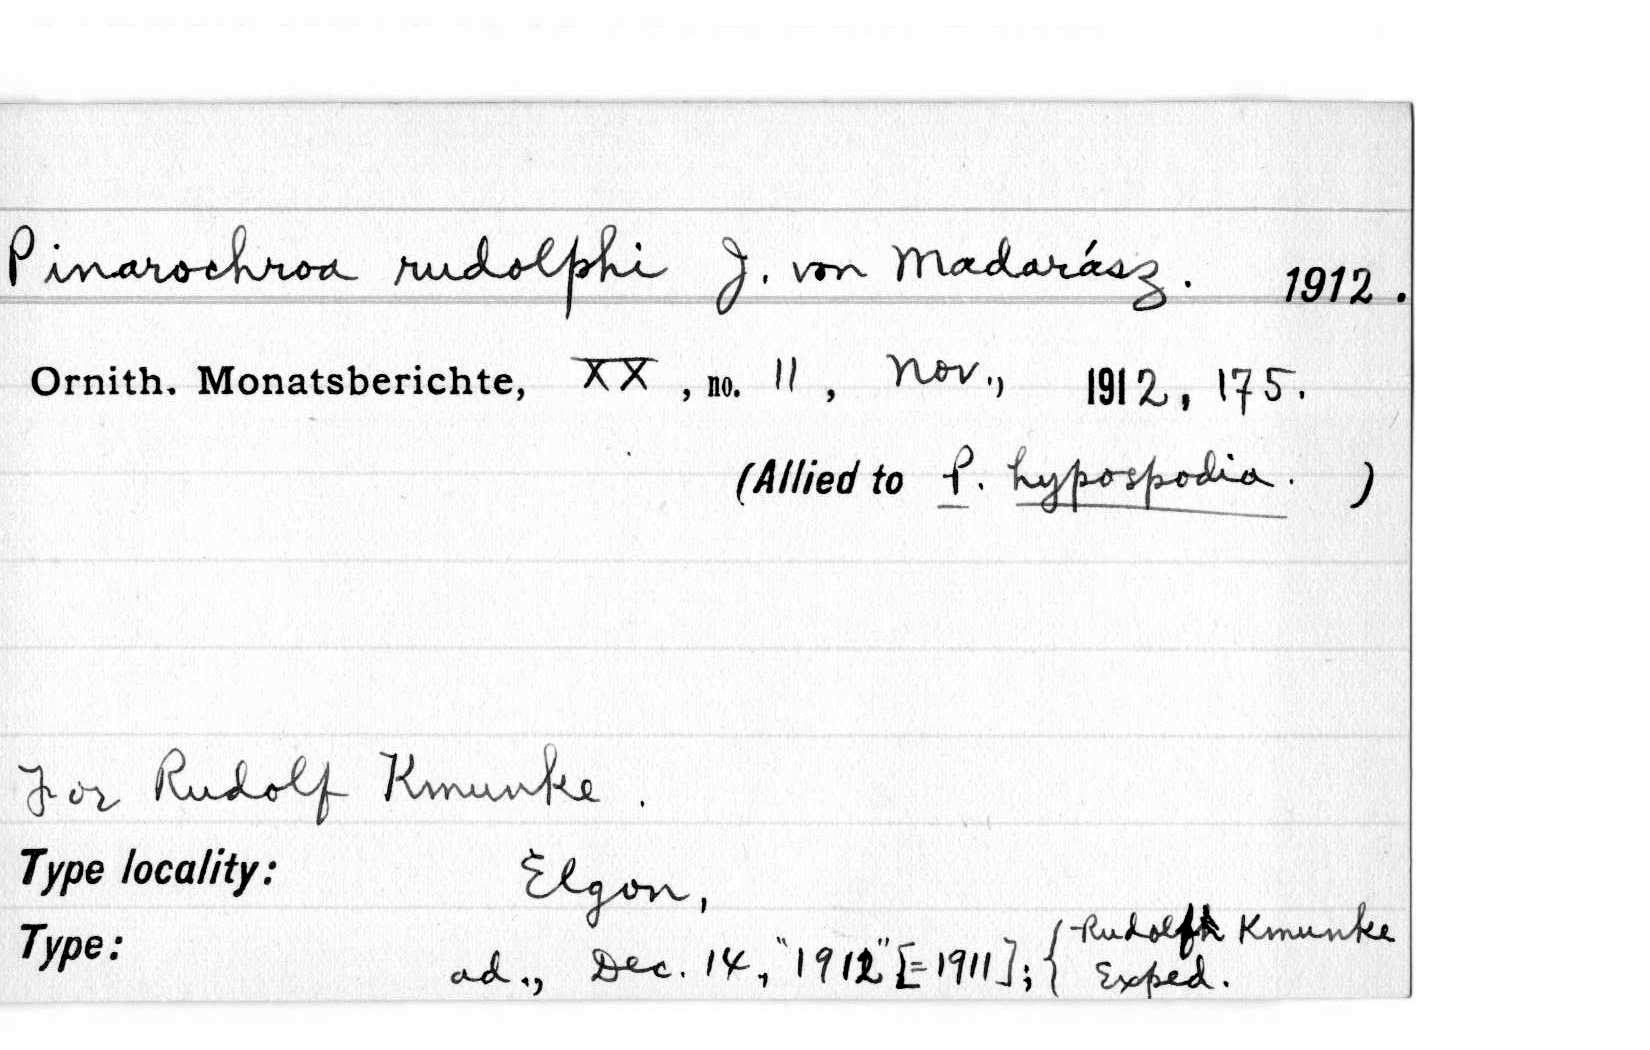 Pinarochroa rudolphi J. von Madarász. 1912.
Ornith. Monatsberichte, XX, no. 11, Nov., 1912, 175.
(Allied to P. hypospodia. )
For Rudolf Kmunke.
Type locality: Elgon,
Type: ad., Dec. 14, "1912" [=1911]; { Rudolf Kmunke
Exped.